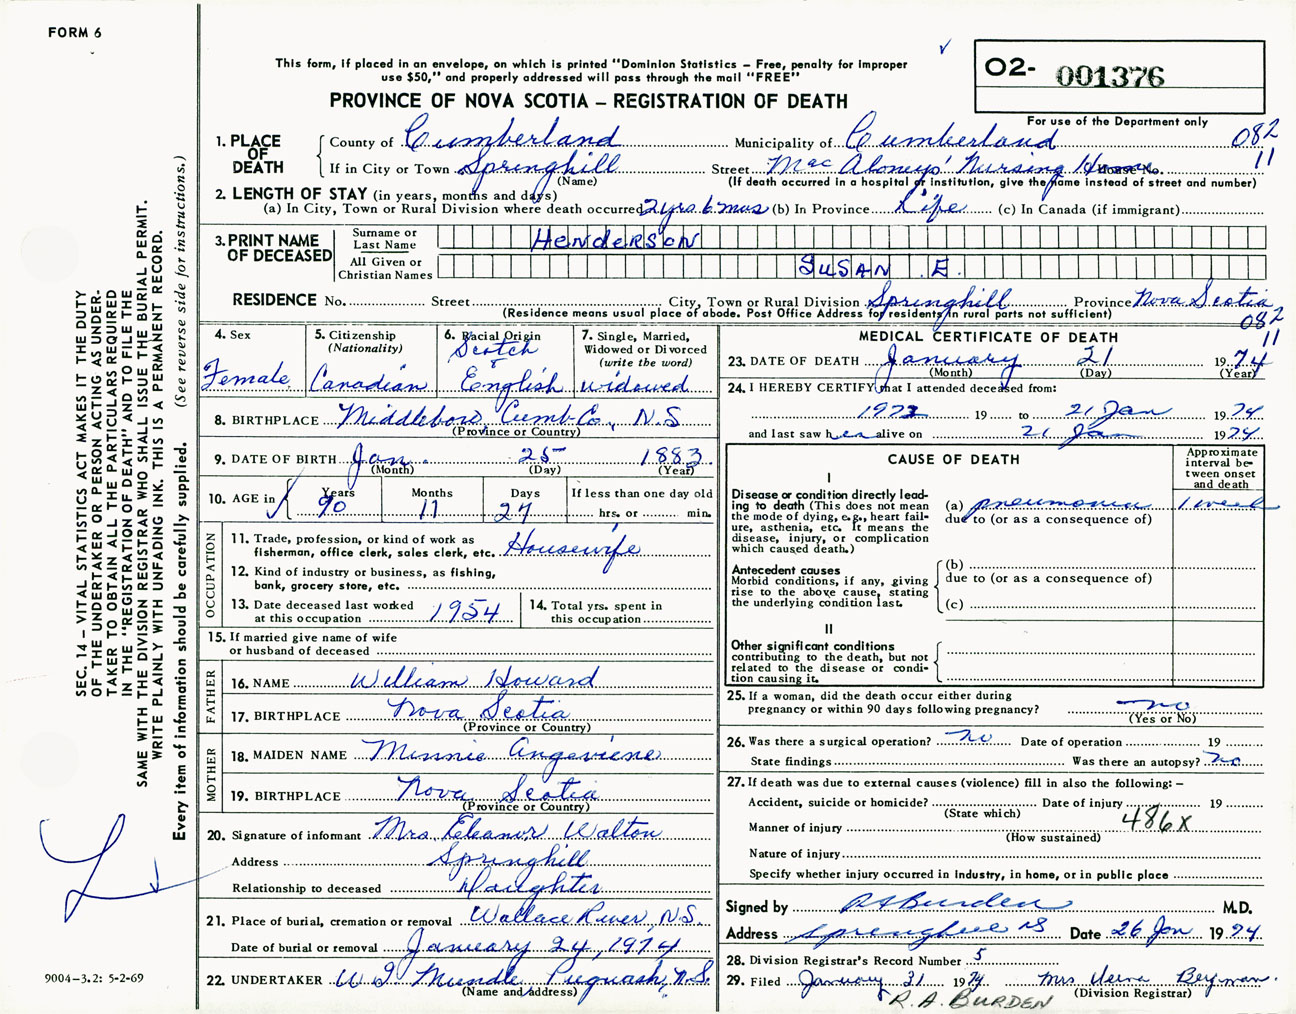 FORM 6
This form, if placed in an envelope, on which is printed "Dominion Statistics – Free, penalty for improper
use $50," and properly addressed will pass through the mail "FREE"
PROVINCE OF NOVA SCOTIA – REGISTRATION OF DEATH
O2- 001376
For use of the Department only
082
11
1. PLACE OF DEATH
County of Cumberland Municipality of Cumberland
If in City or Town Springhill Street Mac Aloneys' Nursing Home House No.
(Name) (If death occurred in a hospital or institution, give the name instead of street and number)
2. LENGTH OF STAY (in years, months and days)
(a) In City, Town or Rural Division where death occurred 2yrs 6 mos (b) In Province Life (c) In Canada (if immigrant)
3. PRINT NAME OF DECEASED
Surname or Last Name HENDERSON
All Given or Christian Names SUSAN E.
RESIDENCE No. Street City, Town or Rural Division Springhill Province Nova Scotia
(Residence means usual place of abode. Post Office Address for residents in rural parts not sufficient)
082
11
4. Sex Female
5. Citizenship (Nationality) Canadian
6. Racial Origin Scotch & English
7. Single, Married, Widowed or Divorced (write the word) widowed
8. BIRTHPLACE Middleboro, Cumb. Co., N.S
(Province or Country)
9. DATE OF BIRTH Jan. 25 1883
(Month) (Day) (Year)
10. AGE in Years Months Days If less than one day old
90 11 27 hrs. or min.
OCCUPATION
11. Trade, profession, or kind of work as
fisherman, office clerk, sales clerk, etc. Housewife
12. Kind of industry or business, as fishing,
bank, grocery store, etc.
13. Date deceased last worked
at this occupation 1954
14. Total yrs. spent in
this occupation
15. If married give name of wife
or husband of deceased
FATHER
16. NAME William Howard
17. BIRTHPLACE Nova Scotia
(Province or Country)
MOTHER
18. MAIDEN NAME Minnie Angeviene
19. BIRTHPLACE Nova Scotia
(Province or Country)
20. Signature of informant Mrs. Eleanor Walton
Address Springhill
Relationship to deceased Daughter
21. Place of burial, cremation or removal Wallace River, N.S.
Date of burial or removal January 24, 1974
22. UNDERTAKER Mundle Pugwash, N.S.
(Name and Address)
MEDICAL CERTIFICATE OF DEATH
23. DATE OF DEATH January 21 1974
(Month) (Day) (Year)
24. I HEREBY CERTIFY that I attended deceased from:
19 to 21 Jan 1974
and last saw her alive on 21 Jan 1974
CAUSE OF DEATH
Approximate
interval be-
tween onset
and death
I
Disease or condition directly lead-
ing to death (This does not mean
the mode of dying, e.g., heart fail-
ure, asthenia, etc. It means the
disease, injury, or complication
which caused death.)
(a) pneumonia 1 week
due to (or as a consequence of)
Antecedent causes
Morbid conditions, if any, giving
rise to the above cause, stating
the underlying condition last.
(b)
due to (or as a consequence of)
(c)
II
Other significant conditions
contributing to the death, but not
related to the disease or condi-
tion causing it.
25. If a woman, did the death occur either during
pregnancy or within 90 days following pregnancy? no
(Yes or No)
26. Was there a surgical operation? no Date of operation 19
State findings Was there an autopsy? no
27. If death was due to external causes (violence) fill in also the following: –
Accident, suicide or homicide? Date of injury 19
(State which)
486X
Manner of injury
(How sustained)
Nature of injury
Specify whether injury occurred in industry, in home, or in public place
Signed by RABurden M.D.
Address Springhill NS Date 26 Jan 1974
28. Division Registrar's Record Number 5
29. Filed January 31 1974 Mrs Bergman.
(Division Registrar)
R.A. BURDEN
SEC. 14 – VITAL STATISTICS ACT MAKES IT THE DUTY
OF THE UNDERTAKER OR PERSON ACTING AS UNDER-
TAKER TO OBTAIN ALL THE PARTICULARS REQUIRED
IN THE "REGISTRATION OF DEATH" AND TO FILE THE
SAME WITH THE DIVISION REGISTRAR WHO SHALL ISSUE THE BURIAL PERMIT.
WRITE PLAINLY WITH UNFADING INK. THIS IS A PERMANENT RECORD.
Every item of information should be carefully supplied. (See reverse side for instructions.)
9004–3.2: 5-2-69